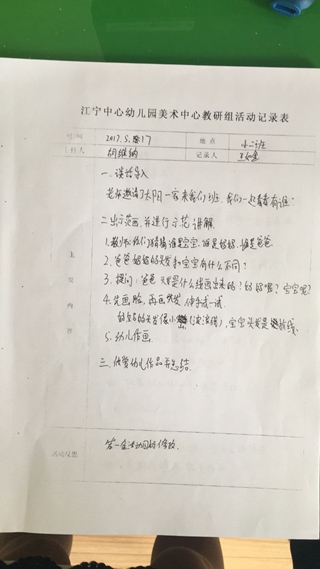 江宁中心幼儿园美术中心教研组活动记录表
时间 2017.5.17 地点 小二班
主持人 胡维纳 记录人
一、谈话导入
老师邀请了太阳一家来我们班,我们一起看看有谁?
二、出示范画,并进行示范讲解
1.教师:我们猜猜谁是宝宝、谁是妈妈、谁是爸爸。
2.爸爸妈妈的头发和宝宝有什么不同?
3.提问:爸爸头发是什么线画出来的?妈妈呢?宝宝呢?
4.先画脸,再画头发,伸手试一试
妈妈的头发像小(波浪线),宝宝头发是线
5.幼儿作画。
三、欣赏幼儿作品并总结。
主要内容
活动反思
第一次活动的修改.